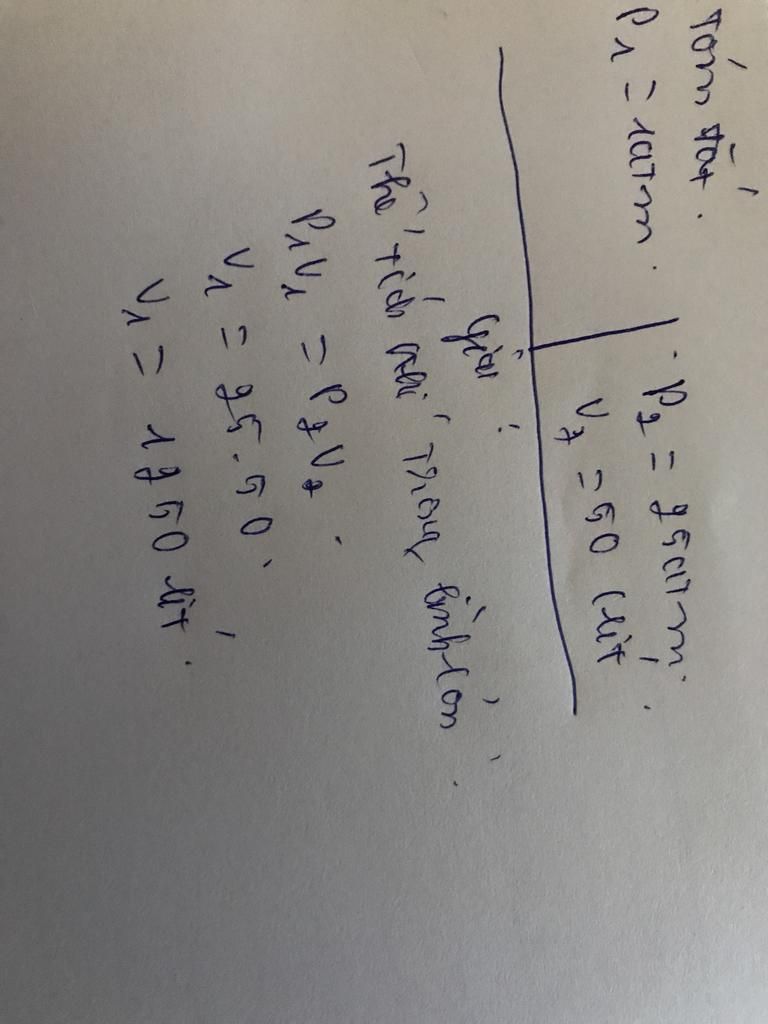 Tóm tắt.
P1 = 1atm. P2 = 25atm.
V2 = 50 (lít
Giải:
Thể tích khí trong bình lớn.
P1V1 = P2V2.
V1 = 25.50.
V1 = 1250 lít.